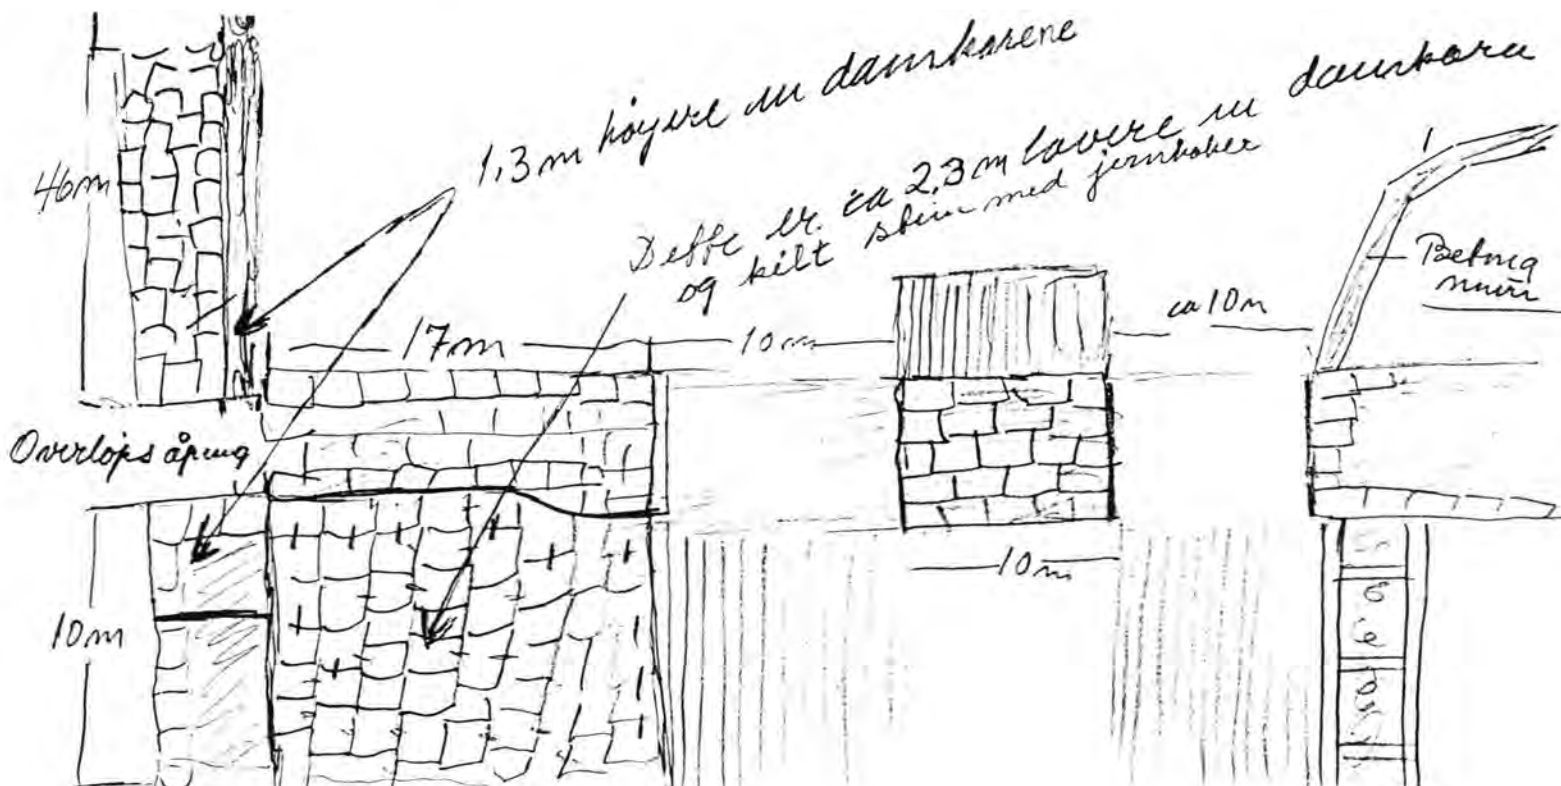 1,3 m høyere en damkarene
Dette er ca 2,3 m lavere en damkara
og kilt stein med jernboker
46m
Betong
muur
ca 10m
17m
10m
Overløps åpning
10m
10m